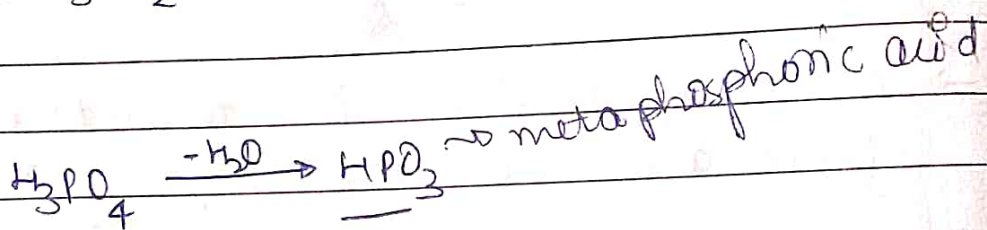 H₃PO₄ —-H₂O→ HPO₃ ~> metaphosphoric acid